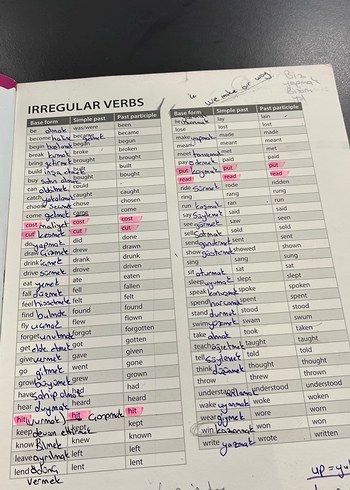 we make our way
Biz
IRREGULAR VERBS
Base form Simple past Past participle
be olmak was/were been
become became became
begin başlamak began begun
break kırmak broke broken
bring getirmek brought brought
build inşa etmek built built
buy satın almak bought bought
can could
catch yakalamak caught caught
choose seçmek chose chosen
come gelmek came come
cost maliyet cost cost
cut kesmek cut cut
do yapmak did done
draw çizmek drew drawn
drink içmek drank drunk
drive sürmek drove driven
eat yemek ate eaten
fall düşmek fell fallen
feel hissetmek felt felt
find bulmak found found
fly uçmak flew flown
forget unutmak forgot forgotten
get elde etmek got got
give vermek gave given
go gitmek went gone
grow büyümek grew grown
have sahip olmak had had
hear duymak heard heard
hit (vurmak) hit Çarpmak hit
keep devam ettirmek kept kept
know bilmek knew known
leave ayrılmak left left
lend ödünç lent lent
vermek
Base form Simple past Past participle
lie lay lain
lose lost lost
make yapmak made made
mean meant meant
meet met met
pay ödemek paid paid
put koymak put put
read read read
ride sürmek rode ridden
ring rang rung
run koşmak ran run
say söylemek said said
see görmek saw seen
sell satmak sold sold
send göndermek sent sent
show göstermek showed shown
sing sang sung
sit oturmak sat sat
sleep uyumak slept slept
speak konuşmak spoke spoken
spend harcamak spent spent
stand durmak stood stood
swim yüzmek swam swum
take almak took taken
teach öğretmek taught taught
tell söylemek told told
think düşünmek thought thought
throw threw thrown
understand anlamak understood understood
wake uyanmak woke woken
wear giymek wore worn
win kazanmak won won
write yazmak wrote written
up =